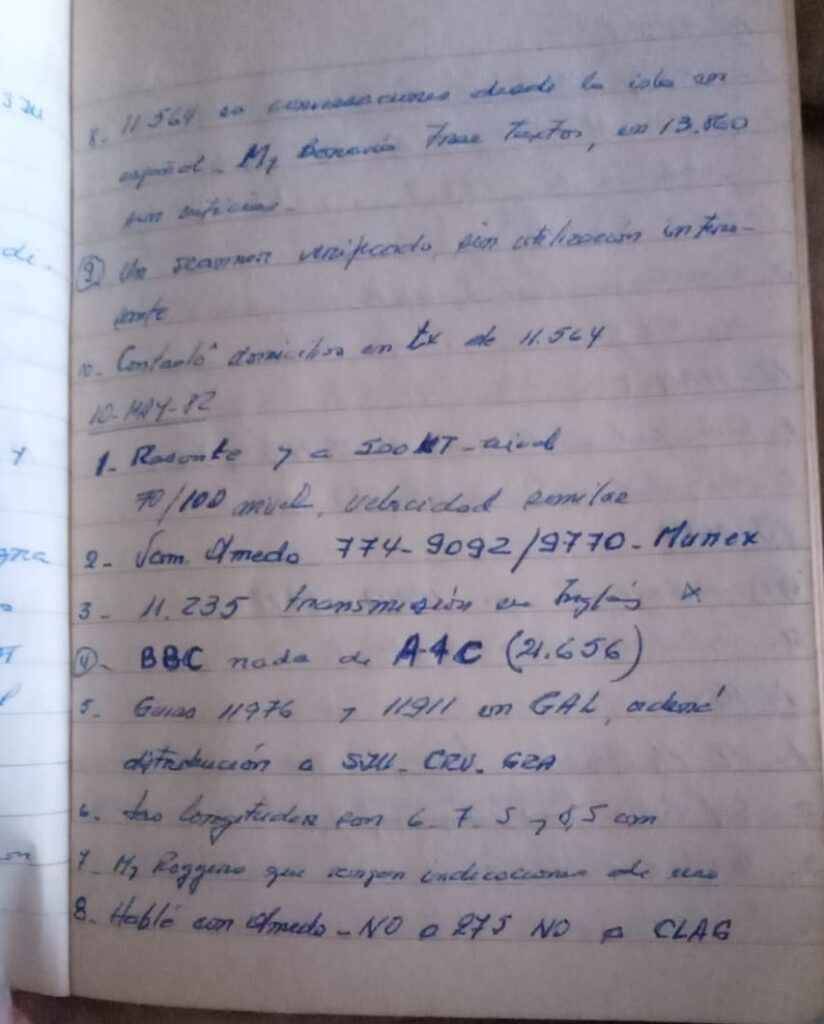 8- 11.564 es conversaciones desde la isla en
español - My Bonavia trae textos, en 13.860
sin noticias -
9) Un scanner verificado, sin utilización intere-
sante
10- Contactó domicilios en tx de 11.564
10-MAY-82
1- Rasante y a 500 KT - nivel
70/100 nivel, velocidad similar
2- Olmedo 774-9092/9770-Munex
3- 11.235 transmisión en Inglés
4)- BBC nada de A-4C (21.656)
5- 11976 y 11911 en GAL, además
distribución a SJU. CRV. GRA
6- Las longitudes son 6 - 7 - 5 y 8,5 cm
7- My Roggero que vengan indicaciones de uso
8- Hablé con Olmedo - NO a 275 NO a CLAG
SJU
di-
y